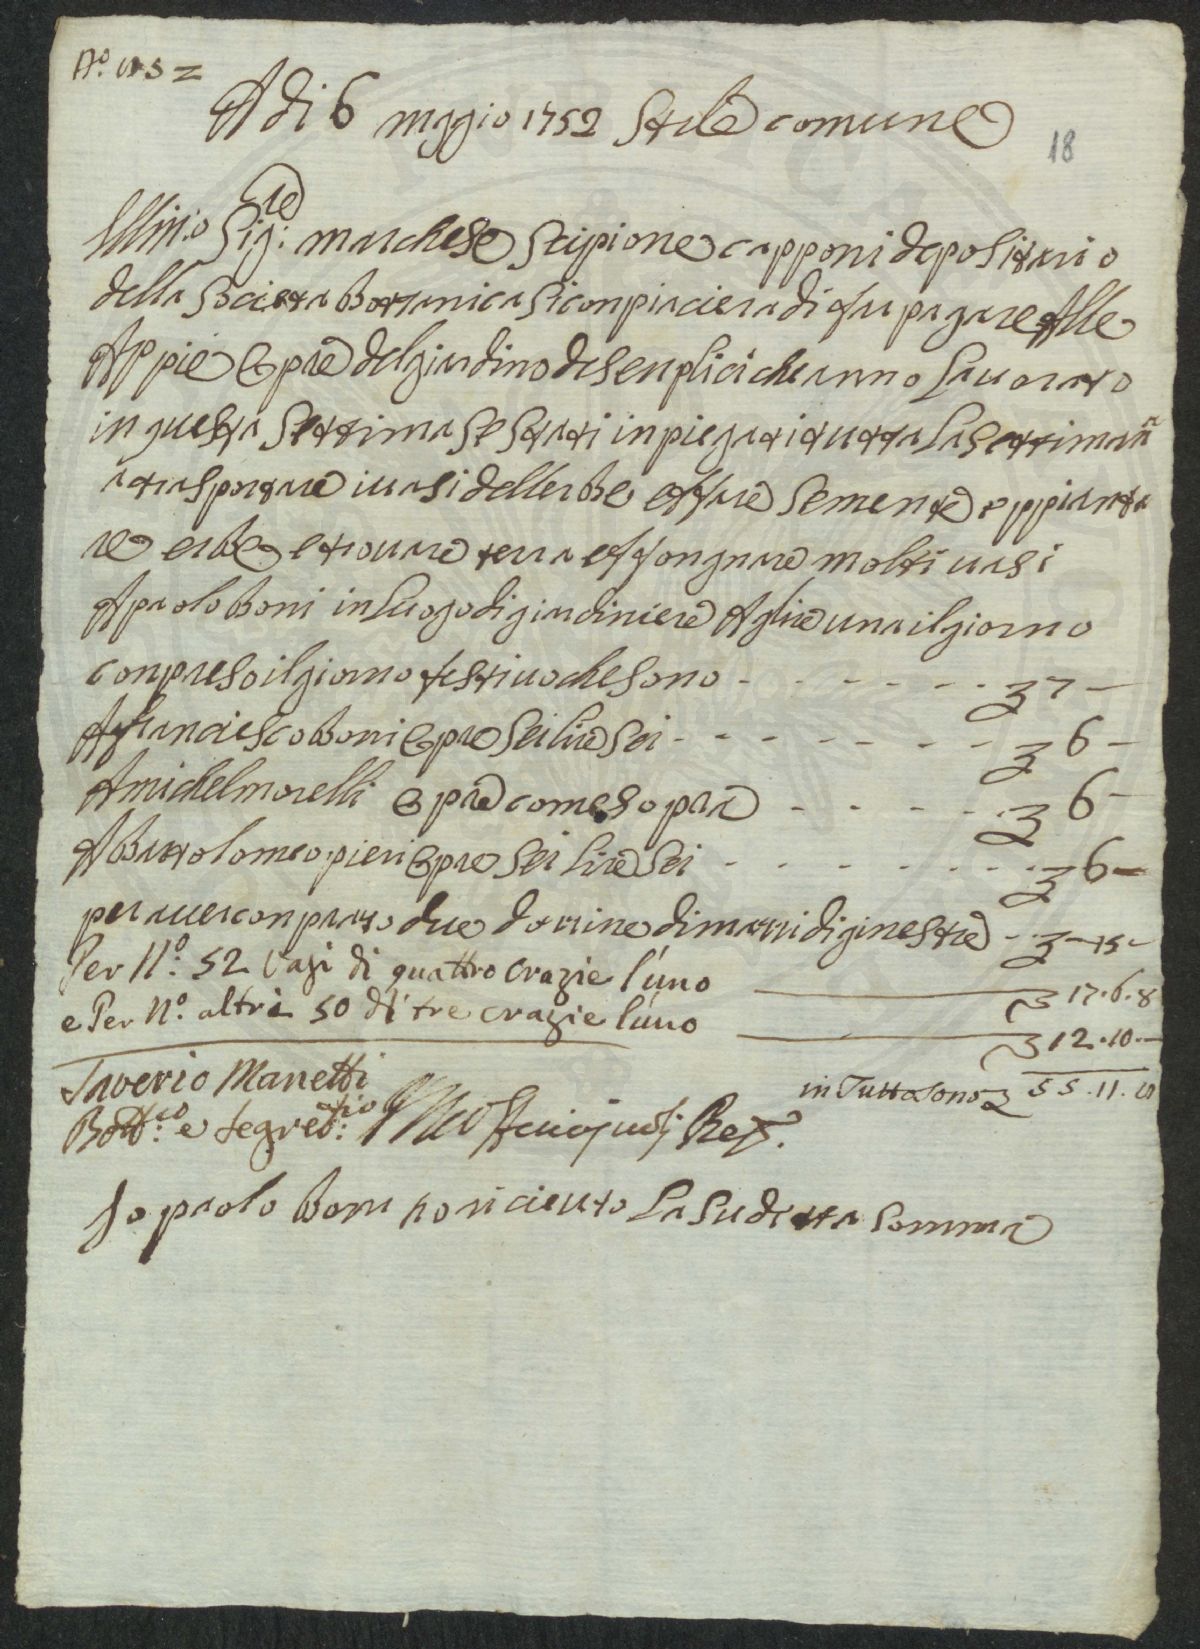 N.o
A di 6 maggio 1752 Stile comune
18
Illm.o Sig:re marchese Scipione capponi depositario
della Societa Bottanica Si conpiaciera di far pagare Alle
Appie Opre del giardino de Senplici che anno Lauorato
in questa Settima Se Stati inpiegati tutta La Settimana
a trasportare i uasi dellerbe effare Semente eppianta
re erbe e trouare terra effongnare molti uasi
A paolo Boni in Luogo di giardiniere A lire una il giorno
conpreso il giorno festiuo che sono - - - - - - 7 -
A franciesco Boni Opre Sei lire Sei - - - - - - - 6 -
A michel morelli Opre come sopra - - - - - 6 -
A Bartolomeo pieri Opre Sei Lire Sei - - - - - - - 6 -
per auer conprato due dozzine di mazzi di ginestre - - 15 -
Per N.o 52 Vasi di quattro crazie l'uno 17.6.8
e Per N.o altri 50 di tre crazie l'uno 12.10.-
in Tutto sono 55.11.8
Saverio Manetti
Bott:co e Segret:rio
Io paolo Boni ho riceuto La Sudetta Somma